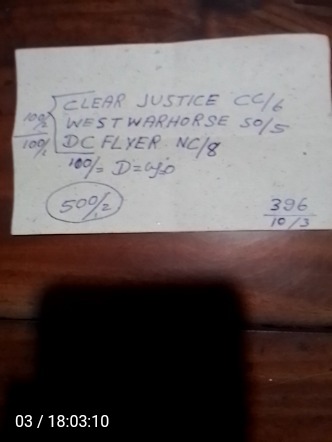 CLEAR JUSTICE CC/6
100/2
WEST WARHORSE SO/5
100/1
DC FLYER NC/8
100/=
50%2
396
10/3
03 / 18:03:10